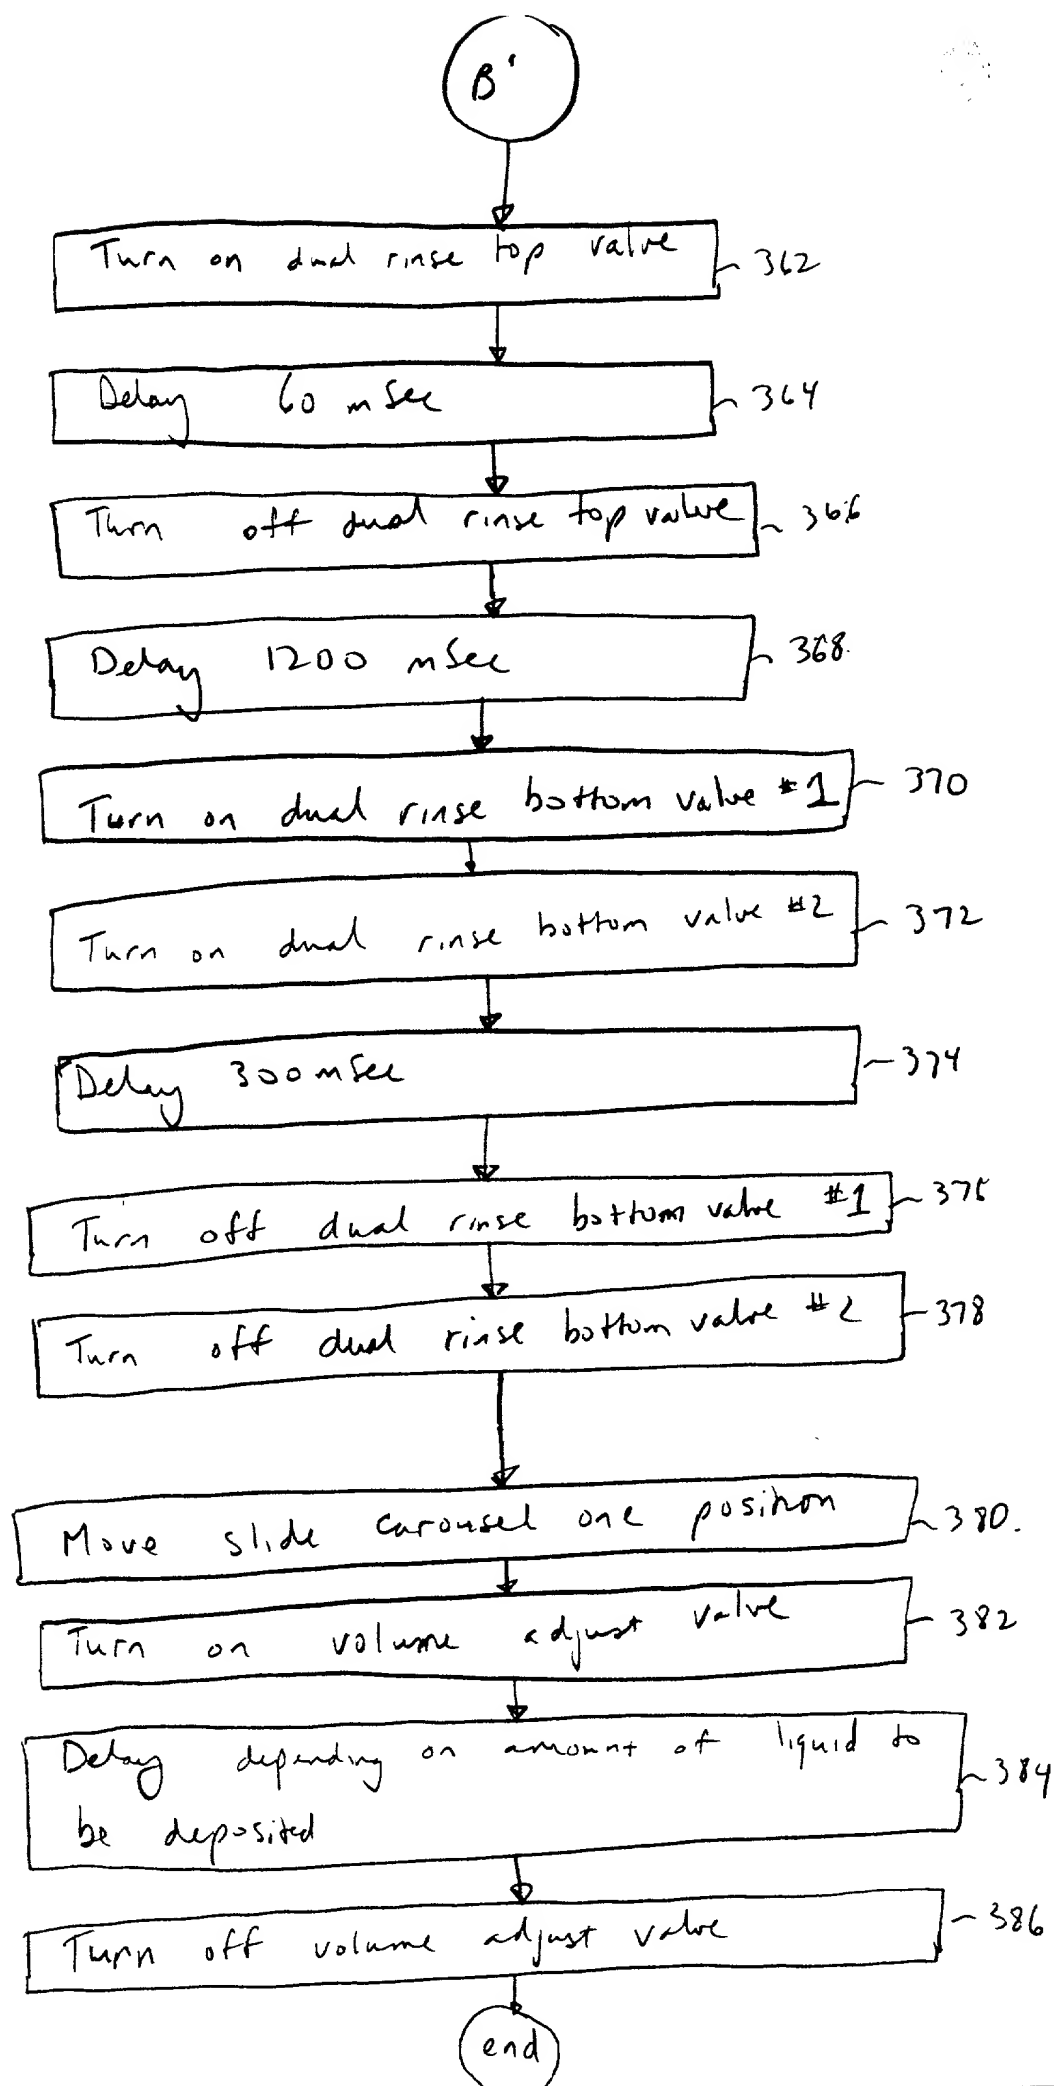 B'
Turn on dual rinse top valve
362
Delay 60 mSec
364
Turn off dual rinse top valve
366
Delay 1200 mSec
368.
Turn on dual rinse bottom valve #1
370
Turn on dual rinse bottom valve #2
372
Delay 300 mSec
374
Turn off dual rinse bottom valve #1
376
Turn off dual rinse bottom valve #2
378
Move slide carousel one position
380.
Turn on volume adjust valve
382
Delay depending on amount of liquid to
be deposited
384
Turn off volume adjust valve
386
end